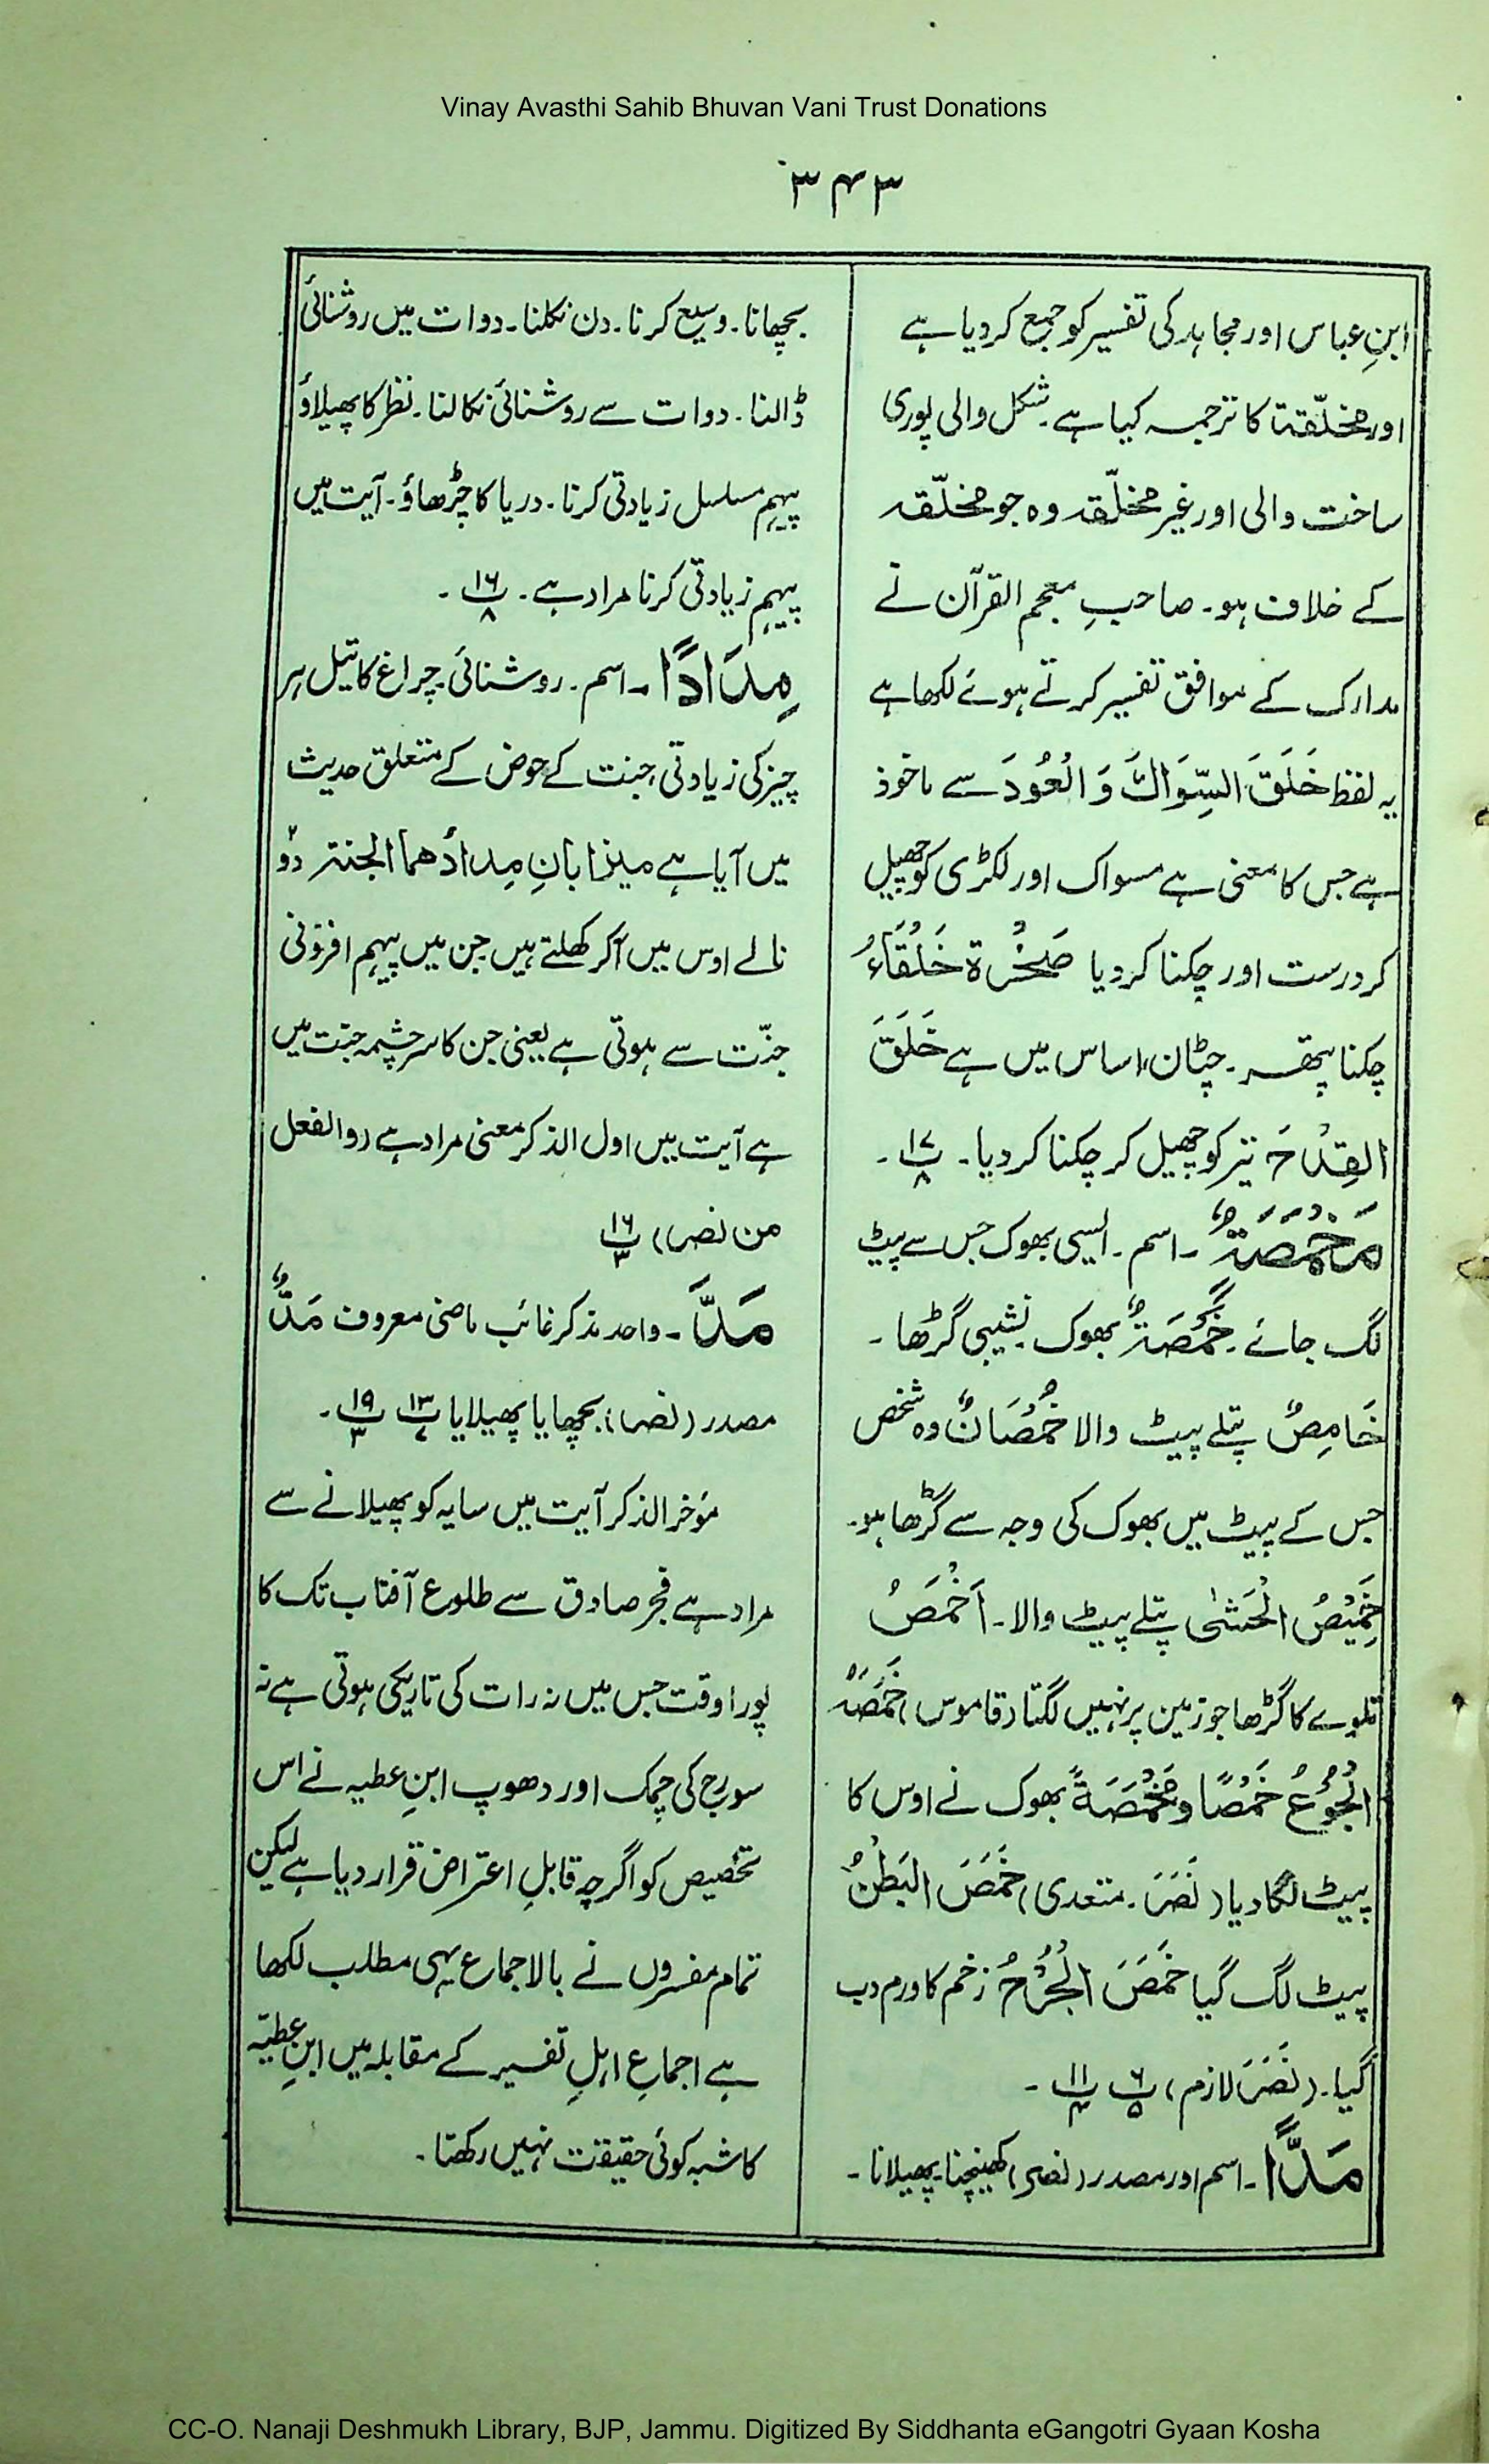 Vinay Avasthi Sahib Bhuvan Vani Trust Donations
۳۴۳
ابنِ عباس اور مجاہد کی تفسیر کو جمع کر دیا ہے
اور مخلّقة کا ترجمہ کیا ہے۔ شکل والی پوری
ساخت والی اور غیر مخلّقہ وہ جو مخلّقہ
کے خلاف ہو۔ صاحبِ معجم القرآن نے
مدارک کے موافق تفسیر کرتے ہوئے لکھا ہے
یہ لفظ خَلَقَ السِّوَاكَ وَ الْعُودَ سے ماخوذ
ہے جس کا معنی ہے مسواک اور لکڑی کو چھیل
کر درست اور چکنا کر دیا صَخْرَة خَلْقَاءُ
چکنا پتھر۔ چٹان، اساس میں ہے خَلَقَ
القِدْحَ تیر کو چھیل کر چکنا کر دیا۔ پ ۱۷/۸ ۔
مَخْمَصَةٌ ۔ اسم ۔ ایسی بھوک جس سے پیٹ
لگ جائے۔ خَمْصَةٌ بھوک نشیبی گڑھا ۔
خَامِصٌ پتلے پیٹ والا خُمْصَانٌ وہ شخص
جس کے پیٹ میں بھوک کی وجہ سے گڑھا ہو۔
خَمِيْصُ الْحَشٰى پتلے پیٹ والا۔ اَخْمَصُ
تلوے کا گڑھا جو زمین پر نہیں لگتا (قاموس) خَمَصَهٗ
الْجُوْعُ خَمْصًا و مَخْمَصَةً بھوک نے اوس کا
پیٹ لگا دیا (نَصَرَ۔ متعدی) خَمَصَ الْبَطْنُ
پیٹ لگ گیا خَمَصَ الْجُرْحُ زخم کا ورم دب
گیا۔ (نَصَرَ لازم) پ ۶/۵ پ ۱۱/۴ ۔
مَدًّا ۔ اسم اور مصدر (نصر) کھینچنا پھیلانا ۔
بچھانا۔ وسیع کرنا۔ دن نکلنا۔ دوات میں روشنائی
ڈالنا۔ دوات سے روشنائی نکالنا۔ نظر کا پھیلاؤ
پیہم مسلسل زیادتی کرنا۔ دریا کا چڑھاؤ۔ آیت میں
پیہم زیادتی کرنا مراد ہے۔ پ ۱۶/۸ ۔
مِدَادًا ۔ اسم۔ روشنائی چراغ کا تیل ہر
چیز کی زیادتی، جنت کے حوض کے متعلق حدیث
میں آیا ہے میزابانِ مِدادُهما الجنة دو
نالے اوس میں آکر کھلتے ہیں جن میں پیہم افزونی
جنّت سے ہوتی ہے یعنی جن کا سرچشمہ جنّت میں
ہے آیت میں اول الذکر معنی مراد ہے (والفعل
من نصر) پ ۱۶/۳
مَدَّ ۔ واحد مذکر غائب ماضی معروف مَدٌّ
مصدر (نصر) بچھایا پھیلایا پ ۱۳/۷ پ ۱۹/۳ ۔
مؤخر الذکر آیت میں سایہ کو پھیلانے سے
مراد ہے فجر صادق سے طلوع آفتاب تک کا
پورا وقت جس میں نہ رات کی تاریکی ہوتی ہے نہ
سورج کی چمک اور دھوپ ابنِ عطیہ نے اس
تخصیص کو اگرچہ قابلِ اعتراض قرار دیا ہے لیکن
تمام مفسروں نے بالاجماع یہی مطلب لکھا
ہے اجماعِ اہلِ تفسیر کے مقابلہ میں ابنِ عطیّہ
کا شبہ کوئی حقیقت نہیں رکھتا۔
CC-O. Nanaji Deshmukh Library, BJP, Jammu. Digitized By Siddhanta eGangotri Gyaan Kosha